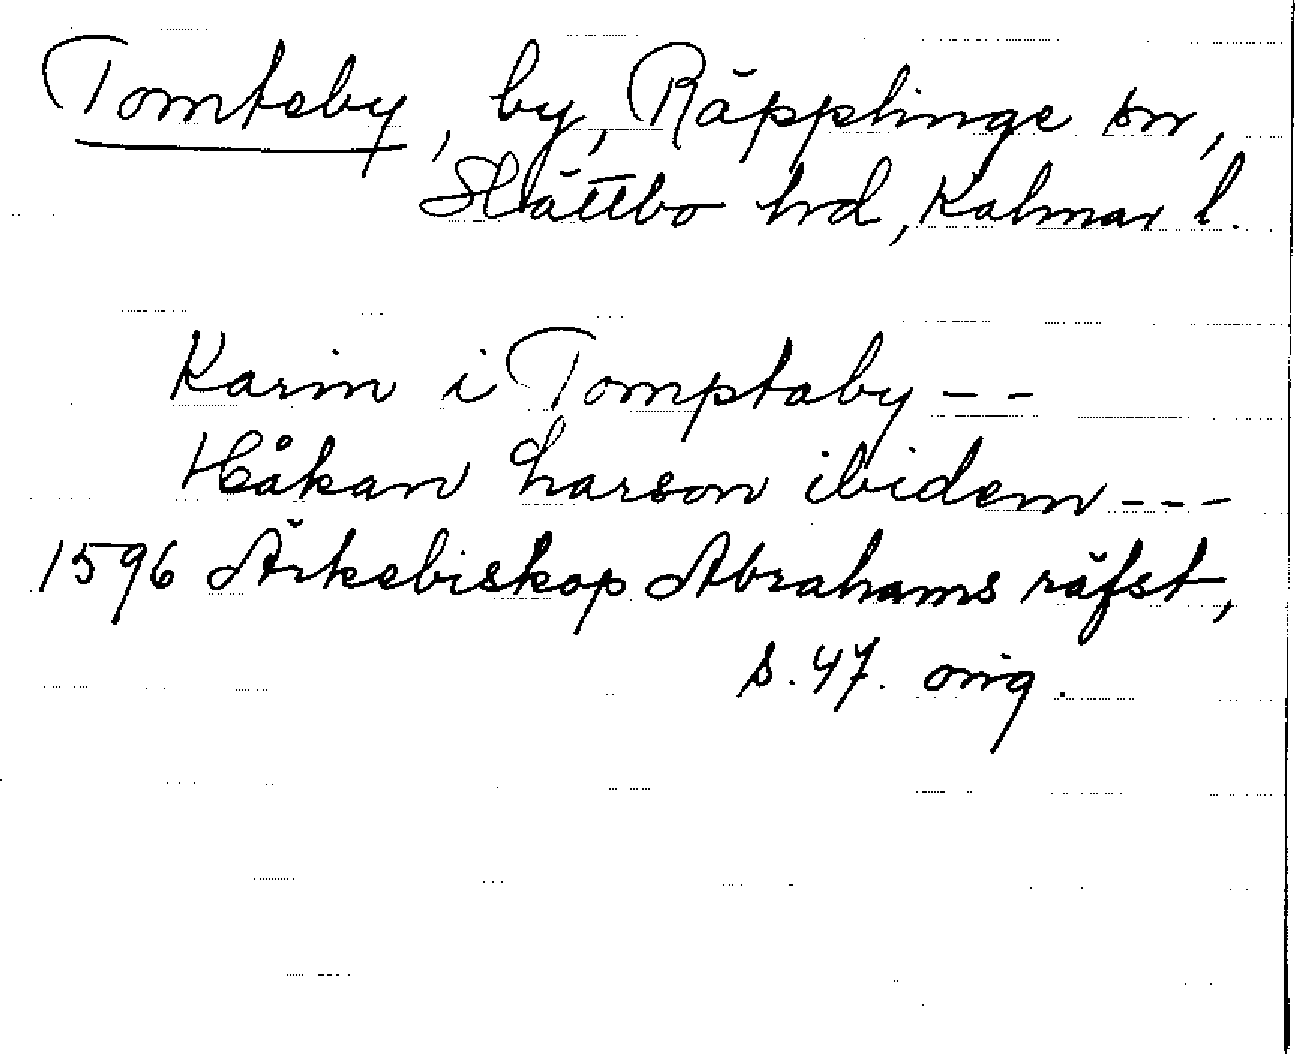 Tomteby, by, Räpplinge sn,
Slättbo hrd, Kalmar l.
Karin i Tomptaby - -
Håkan Larson ibidem - - -
1596 Ärkebiskop Abrahams räfst,
s. 47. orig.